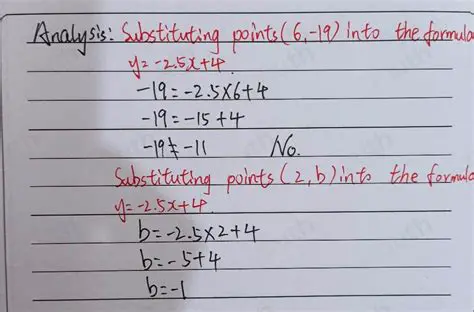 Analysis: Substituting points (6,-19) into the formula
y=-2.5x+4.
-19=-2.5×6+4
-19=-15+4
-19≠-11 No.
Substituting points (2,b) into the formula
y=-2.5x+4.
b=-2.5×2+4
b=-5+4
b=-1